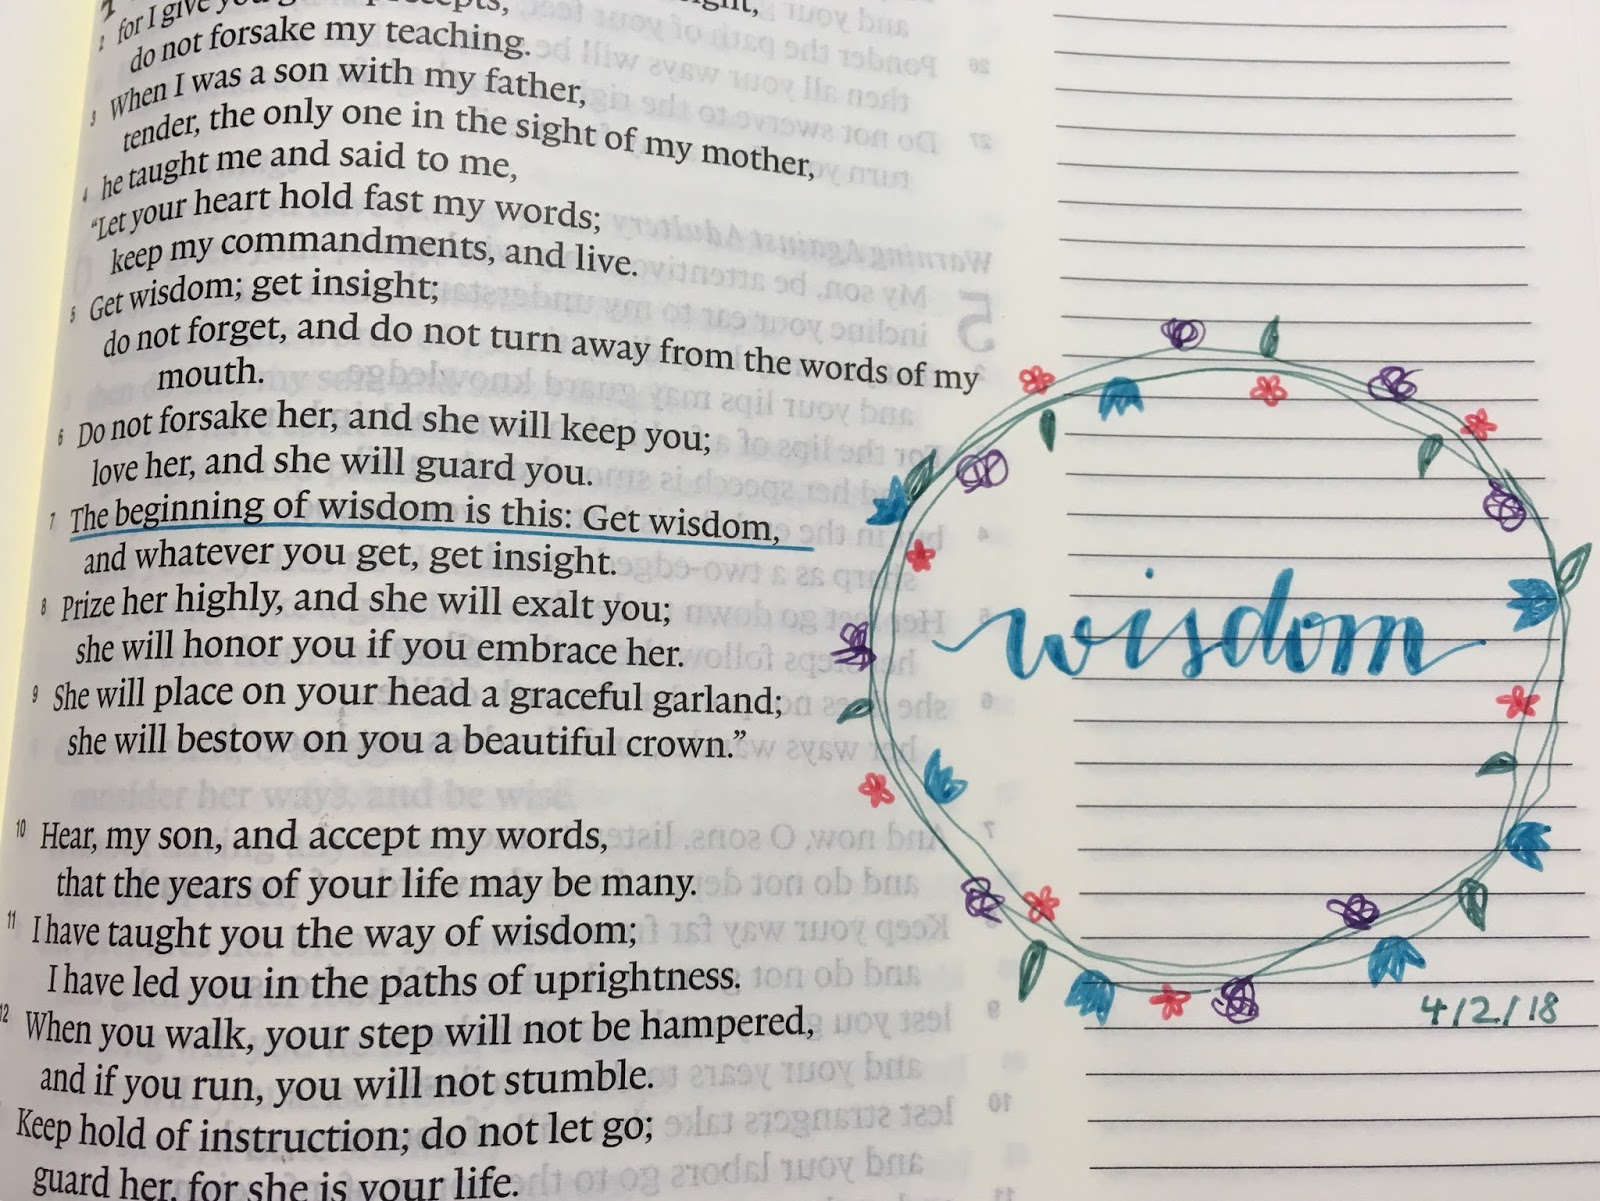 2 for I give you
do not forsake my teaching.
3 When I was a son with my father,
tender, the only one in the sight of my mother,
4 he taught me and said to me,
“Let your heart hold fast my words;
keep my commandments, and live.
5 Get wisdom; get insight;
do not forget, and do not turn away from the words of my
mouth.
6 Do not forsake her, and she will keep you;
love her, and she will guard you.
7 The beginning of wisdom is this: Get wisdom,
and whatever you get, get insight.
8 Prize her highly, and she will exalt you;
she will honor you if you embrace her.
9 She will place on your head a graceful garland;
she will bestow on you a beautiful crown.”
10 Hear, my son, and accept my words,
that the years of your life may be many.
11 I have taught you the way of wisdom;
I have led you in the paths of uprightness.
12 When you walk, your step will not be hampered,
and if you run, you will not stumble.
Keep hold of instruction; do not let go;
guard her, for she is your life.
wisdom
4/2/18